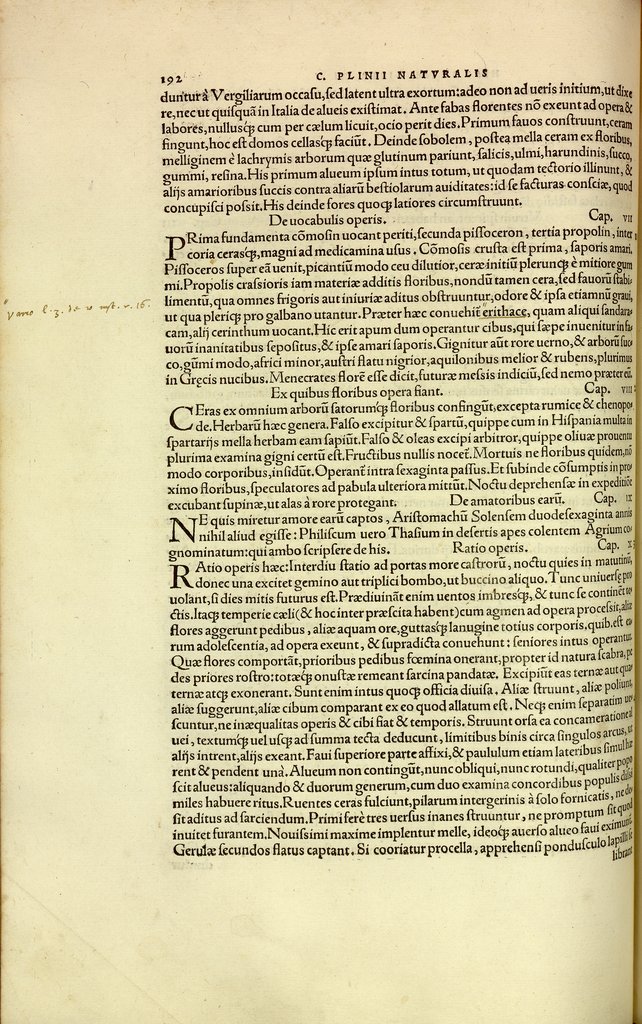 192 C. PLINII NATVRALIS
duntur à Vergiliarum occasu, sed latent ultra exortum: adeo non ad ueris initium, ut dixe
re, nec ut quisquã in Italia de alueis existimat. Ante fabas florentes nõ exeunt ad opera &
labores, nullusq; cum per cælum licuit, ocio perit dies. Primum fauos construunt, ceram
fingunt, hoc est domos cellasq; faciũt. Deinde sobolem, postea mella ceram ex floribus,
melliginem è lachrymis arborum quæ glutinum pariunt, salicis, ulmi, harundinis, succo,
gummi, resina. His primum alueum ipsum intus totum, ut quodam tectorio illinunt, &
alijs amarioribus succis contra aliarũ bestiolarum auiditates: id se facturas consciæ, quod
concupisci possit. His deinde fores quoq; latiores circumstruunt.
De uocabulis operis. Cap. VII
PRima fundamenta cõmosin uocant periti, secunda pissoceron, tertia propolin, inter
coria cerasq;, magni ad medicamina usus. Cõmosis crusta est prima, saporis amari.
Pissoceros super eã uenit, picantiũ modo ceu dilutior, ceræ initiũ plerunq; è mitiore gum
mi. Propolis crassioris iam materiæ additis floribus, nondũ tamen cera, sed fauorũ stabi
limentũ, qua omnes frigoris aut iniuriæ aditus obstruuntur, odore & ipsa etiamnũ graui,
ut qua pleriq; pro galbano utantur. Præter hæc conuehiť erithace, quam aliqui sandara
Vario l. 3. de r rust. c. 16.
cam, alij cerinthum uocant. Hic erit apum dum operantur cibus, qui sæpe inuenitur in fa
uorũ inanitatibus sepositus, & ipse amari saporis. Gignitur aũt rore uerno, & arborũ suc
co, gũmi modo, africi minor, austri flatu nigrior, aquilonibus melior & rubens, plurimus
in Grecis nucibus. Menecrates florẽ esse dicit, futuræ messis indiciũ, sed nemo præter eũ.
Ex quibus floribus opera fiant. Cap. VIII
CEras ex omnium arborũ satorumq; floribus confingũt, excepta rumice & chenopo
de. Herbarũ hæc genera. Falso excipitur & spartũ, quippe cum in Hispania multa in
spartarijs mella herbam eam sapiũt. Falso & oleas excipi arbitror, quippe oliuæ prouentu
plurima examina gigni certũ est. Fructibus nullis nocet. Mortuis ne floribus quidem, nõ
modo corporibus, insidũt. Operanť intra sexaginta passus. Et subinde cõsumptis in pro
ximo floribus, speculatores ad pabula ulteriora mittũt. Noctu deprehensæ in expeditiõe
excubant supinæ, ut alas à rore protegant. De amatoribus earũ. Cap. IX
NE quis miretur amore earũ captos, Aristomachũ Solensem duodesexaginta annis
nihil aliud egisse: Philiscum uero Thasium in desertis apes colentem Agrium co
gnominatum: qui ambo scripsere de his. Ratio operis. Cap. X
RAtio operis hæc: Interdiu statio ad portas more castrorũ, noctu quies in matutinũ,
donec una excitet gemino aut triplici bombo, ut buccino aliquo. Tunc uniuersę pro
uolant, si dies mitis futurus est. Prædiuinãt enim uentos imbresq;, & tunc se continẽt te
ctis. Itaq; temperie cæli (& hoc inter præscita habent) cum agmen ad opera processit, aliæ
flores aggerunt pedibus, aliæ aquam ore, guttasq; lanugine totius corporis, quib. est ea
rum adolescentia, ad opera exeunt, & supradicta conuehunt: seniores intus operantur.
Quæ flores comportãt, prioribus pedibus fœmina onerant, propter id natura scabra, pe
des priores rostro: totæq; onustæ remeant sarcina pandatæ. Excipiũt eas ternæ aut qua
ternæ atq; exonerant. Sunt enim intus quoq; officia diuisa. Aliæ struunt, aliæ poliunt,
aliæ suggerunt, aliæ cibum comparant ex eo quod allatum est. Neq; enim separatim ue
scuntur, ne inæqualitas operis & cibi fiat & temporis. Struunt orsa ea concameratione al
uei, textumq; uel usq; ad summa tecta deducunt, limitibus binis circa singulos arcus, ut
alijs intrent, alijs exeant. Faui superiore parte affixi, & paululum etiam lateribus simul hæ
rent & pendent unà. Alueum non contingũt, nunc obliqui, nunc rotundi, qualiter popo
scit alueus: aliquando & duorum generum, cum duo examina concordibus populis dissi
miles habuere ritus. Ruentes ceras fulciunt, pilarum intergerinis à solo fornicatis, ne de
sit aditus ad sarciendum. Primi ferè tres uersus inanes struuntur, ne promptum sit quod
inuitet furantem. Nouissimi maxime implentur melle, ideoq; auerso alueo faui eximuntur.
Gerulæ secundos flatus captant. Si cooriatur procella, apprehensi pondusculo lapilli se
librant